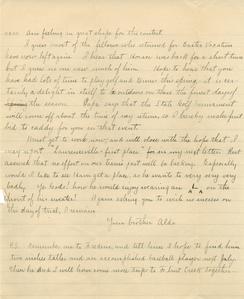 ness. Am feeling in great shape for the contest.
I guess most of the fellows who returned for Easter Vacation
have now left again. I hear that Homer was back for a short time
but I guess no one saw much of him. Hope to hear that you
have had lots of time to play golf and tennis this spring. It is cer-
tainly a delight in itself to be outdoors on these the finest days of
the season. Papa says that the State Golf tournament
will come off about the time of my return, so I hereby make first
bid to caddy for you in that event.
Must get to work now, and will close with the hope that I
may write "Lawrenceville - first place" in my very next letter. Rest
assured that no effort on our team's part will be lacking. Especially
would I like to see Sam get a place, as he wants to very very very
badly. Ye Gods! how he would enjoy wearing an L on the
front of his sweater! Again asking you to wish us success on
the day of trial, I remain
Your brother Aldo
P.S. Remember me to Frederic, and tell him I hope to find him
two inches taller and an accomplished baseball player next July.
Then he and I will have some more trips to Flint Creek together.